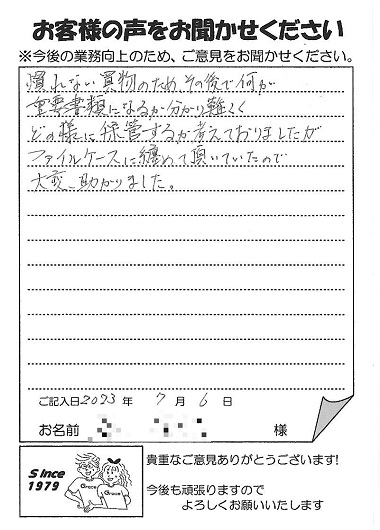 お客様の声をお聞かせください
※今後の業務向上のため、ご意見をお聞かせください。
慣れない買物のため、その後で何が
重要書類になるか分かり難く
どの様に保管するか考えておりましたが
ファイルケースに纏めて頂いていたので
大変、助かりました。
ご記入日2023年 7月 6日
お名前 様
Since
1979
Grace
Grace
貴重なご意見ありがとうございます!
今後も頑張りますので
よろしくお願いいたします